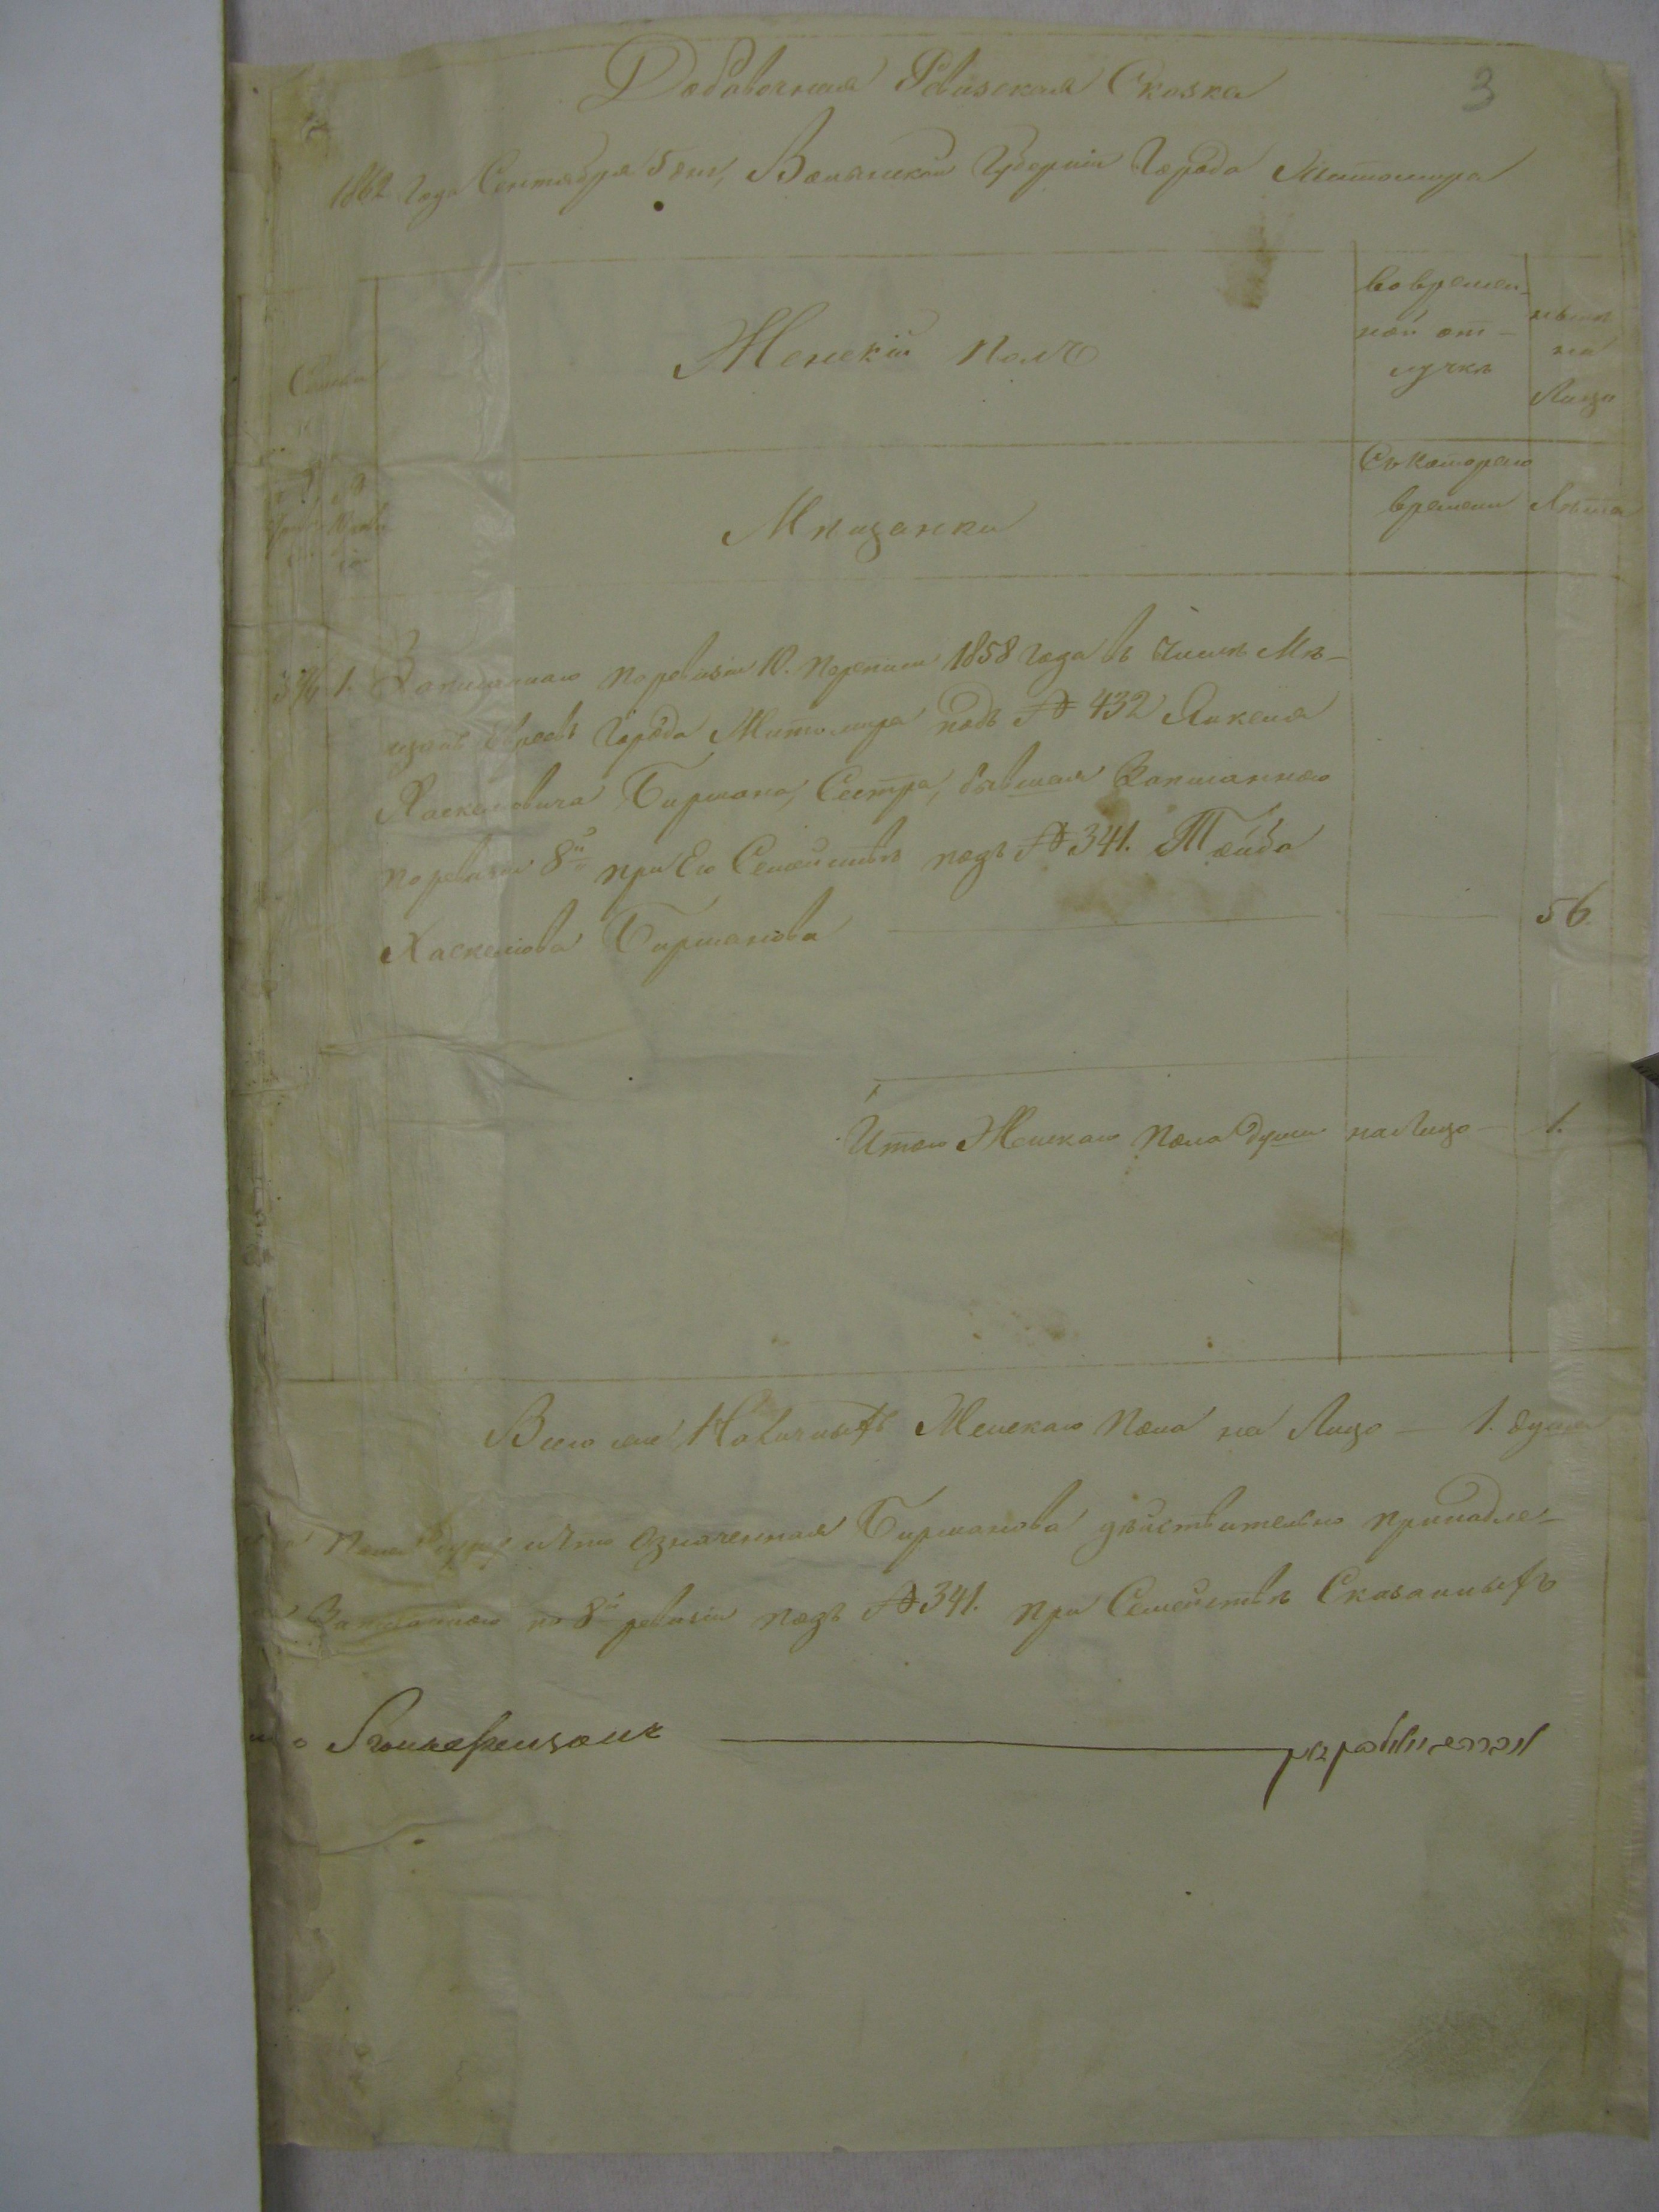 Добавочная Ревизская Сказка
3
1862 Года Сентября 5 дня, Волынской Губерніи Города Житомира
Семьи
Женскій полъ
Во времен-
ной от-
лучкѣ
на
Лицо
Мѣщанки
Съ котораго
времени
Лѣта
1. Записаннаго по ревизіи 10. переписи 1858 года въ числѣ Мѣ-
щанъ Евреевъ Города Житомира подъ № 432 Янкеля
Хаскелевича Бирмана, Сестра, бывшая Записанною
по ревизіи 8й при Его Семействѣ подъ № 341. Тойба
Хаскелева Бирманова
56
Итого Женскаго пола души на Лицо 1.
Всего Наличныхъ Женскаго пола на Лицо — 1. душа
означенная Бирманова дѣйствительно принадле-
Записанною по 8й ревизіи подъ № 341. при Семействѣ Сказанныхъ